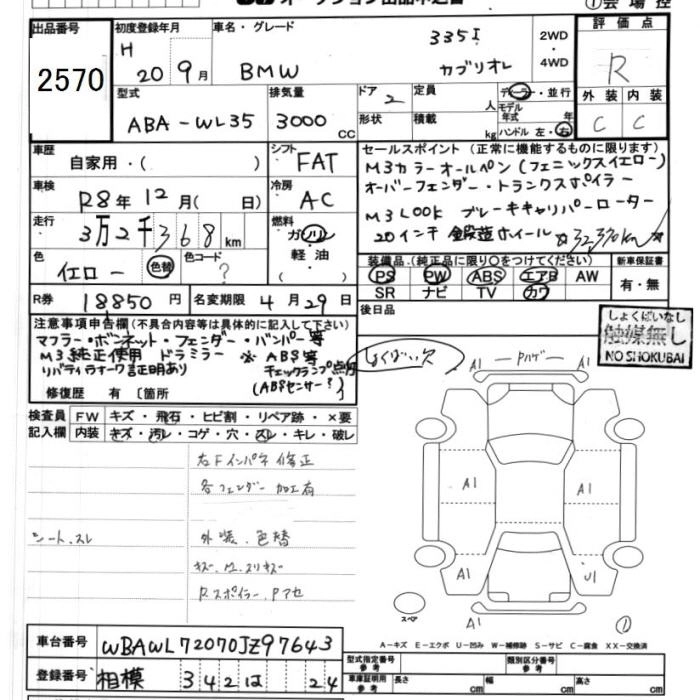 オークション出品申込書
①会場控
出品番号 初度登録年月 車名・グレード 評価点
2570
H 20 9月 BMW 335i カブリオレ 2WD・4WD R
型式 排気量 ドア 定員 ディーラー・並行
ABA-WL35 3000CC 2 人 モデル年式 年
形状 積載 kg ハンドル 左・右
外装 内装
C C
車歴 シフト セールスポイント (正常に機能するものに限ります)
自家用・( ) FAT M3カラーオールペン(フェニックスイエロー)
車検 冷房 オーバーフェンダー・トランクスポイラー
R8年12月( 日) AC M3LOOK ブレーキキャリパーローター
走行 燃料 20インチ鍛造ホイール ☆32,370km☆
3万2千368km ガソリン・軽油( )
色 色コード 装備品(純正品に限り○をつけてください) 新車保証書
イエロー 色替 ? PS PW ABS エアB AW 有・無
SR ナビ TV カワ
R券 18850円 名変期限 4月29日 後日品
注意事項申告欄(不具合内容等は具体的に記入して下さい)
マフラー・ボンネット・フェンダー・バンパー等
M3純正使用 ドラミラー ※ABS等
チェックランプ点灯
(ABSセンサー?)
修復歴 有〔箇所
しょくばい欠
しょくばいなし
触媒無し
NO SHOKUBAI
検査員記入欄 FW キズ・飛石・ヒビ割・リペア跡・×要
内装 キズ・汚レ・コゲ・穴・スレ・キレ・破レ
右Fインパネ修正
各フェンダー加工有
シート、スレ 外装、色替
A1 A1
A1 A1
A1 U1
A1
スペア ①
A－キズ E－エクボ U－凹み W－補修跡 S－サビ C－腐食 XX－交換済
車台番号 WBAWL72070JZ97643
登録番号 相模 342 は 24
型式指定番号 参考 類別区分番号 参考
車庫証明用 参考 長さ cm 幅 cm 高さ cm